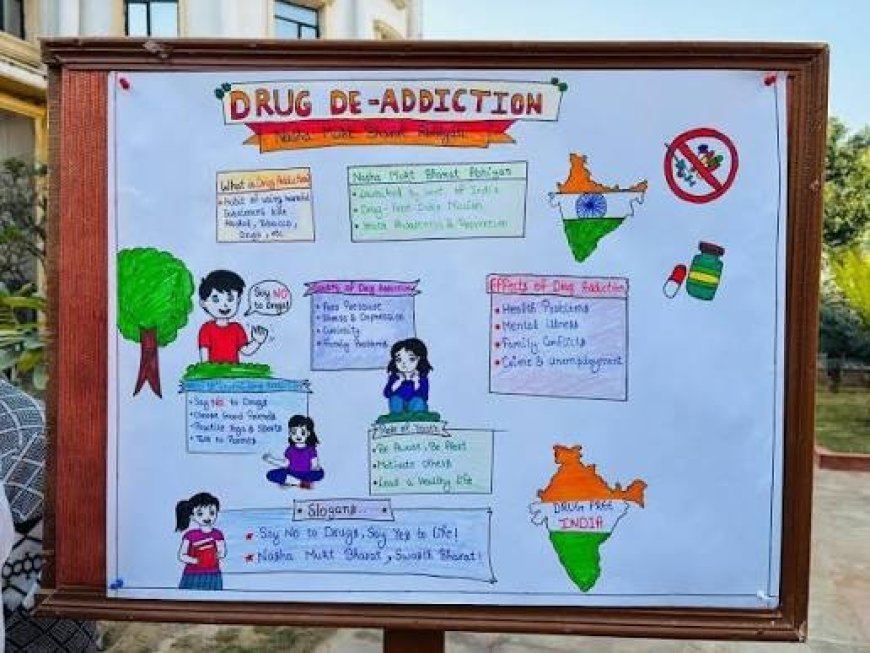 DRUG DE-ADDICTION
Nasha Mukt Bharat Abhiyan
What is Drug Addiction
Habit of using harmful
like
Alcohol, Tobacco,
Drugs, etc.
Nasha Mukt Bharat Abhiyan
Launched by Govt of India
Drug-Free India Mission
Awareness & Prevention
Say NO
to Drugs!
of Drug Addiction
Peer Pressure
Stress & Depression
Curiosity
Family Problems
Effects of Drug Addiction
Health Problems
Mental Illness
Family Conflicts
Crime & Unemployment
Say NO to Drugs
Choose Good Friends
Practice Yoga & Sports
Talk to Parents
Role of Youth
Be Aware, Be Alert
Motivate Others
Lead a Healthy Life
DRUG FREE
INDIA
Slogans..
Say No to Drugs, Say Yes to Life!
Nasha Mukt Bharat, Swasth Bharat!